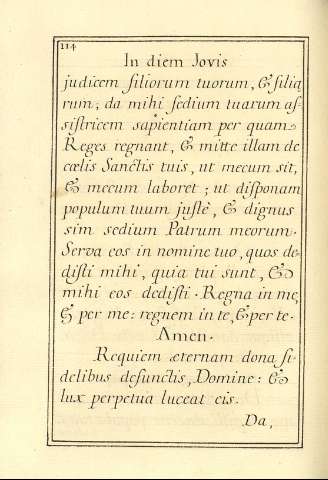 114
In diem Jovis
judicem filiorum tuorum, & filia
rum; da mihi sedium tuarum as-
sistricem sapientiam per quam
Reges regnant, & mitte illam de
cœlis Sanctis tuis, ut mecum sit,
& mecum laboret; ut disponam
populum tuum justè, & dignus
sim sedium Patrum meorum.
Serva eos in nomine tuo, quos de-
disti mihi, quia tui sunt, &
mihi eos dedisti. Regna in me,
& per me: regnem in te, & per te.
Amen.
Requiem æternam dona fi-
delibus defunctis, Domine: &
lux perpetua luceat eis.
Da,